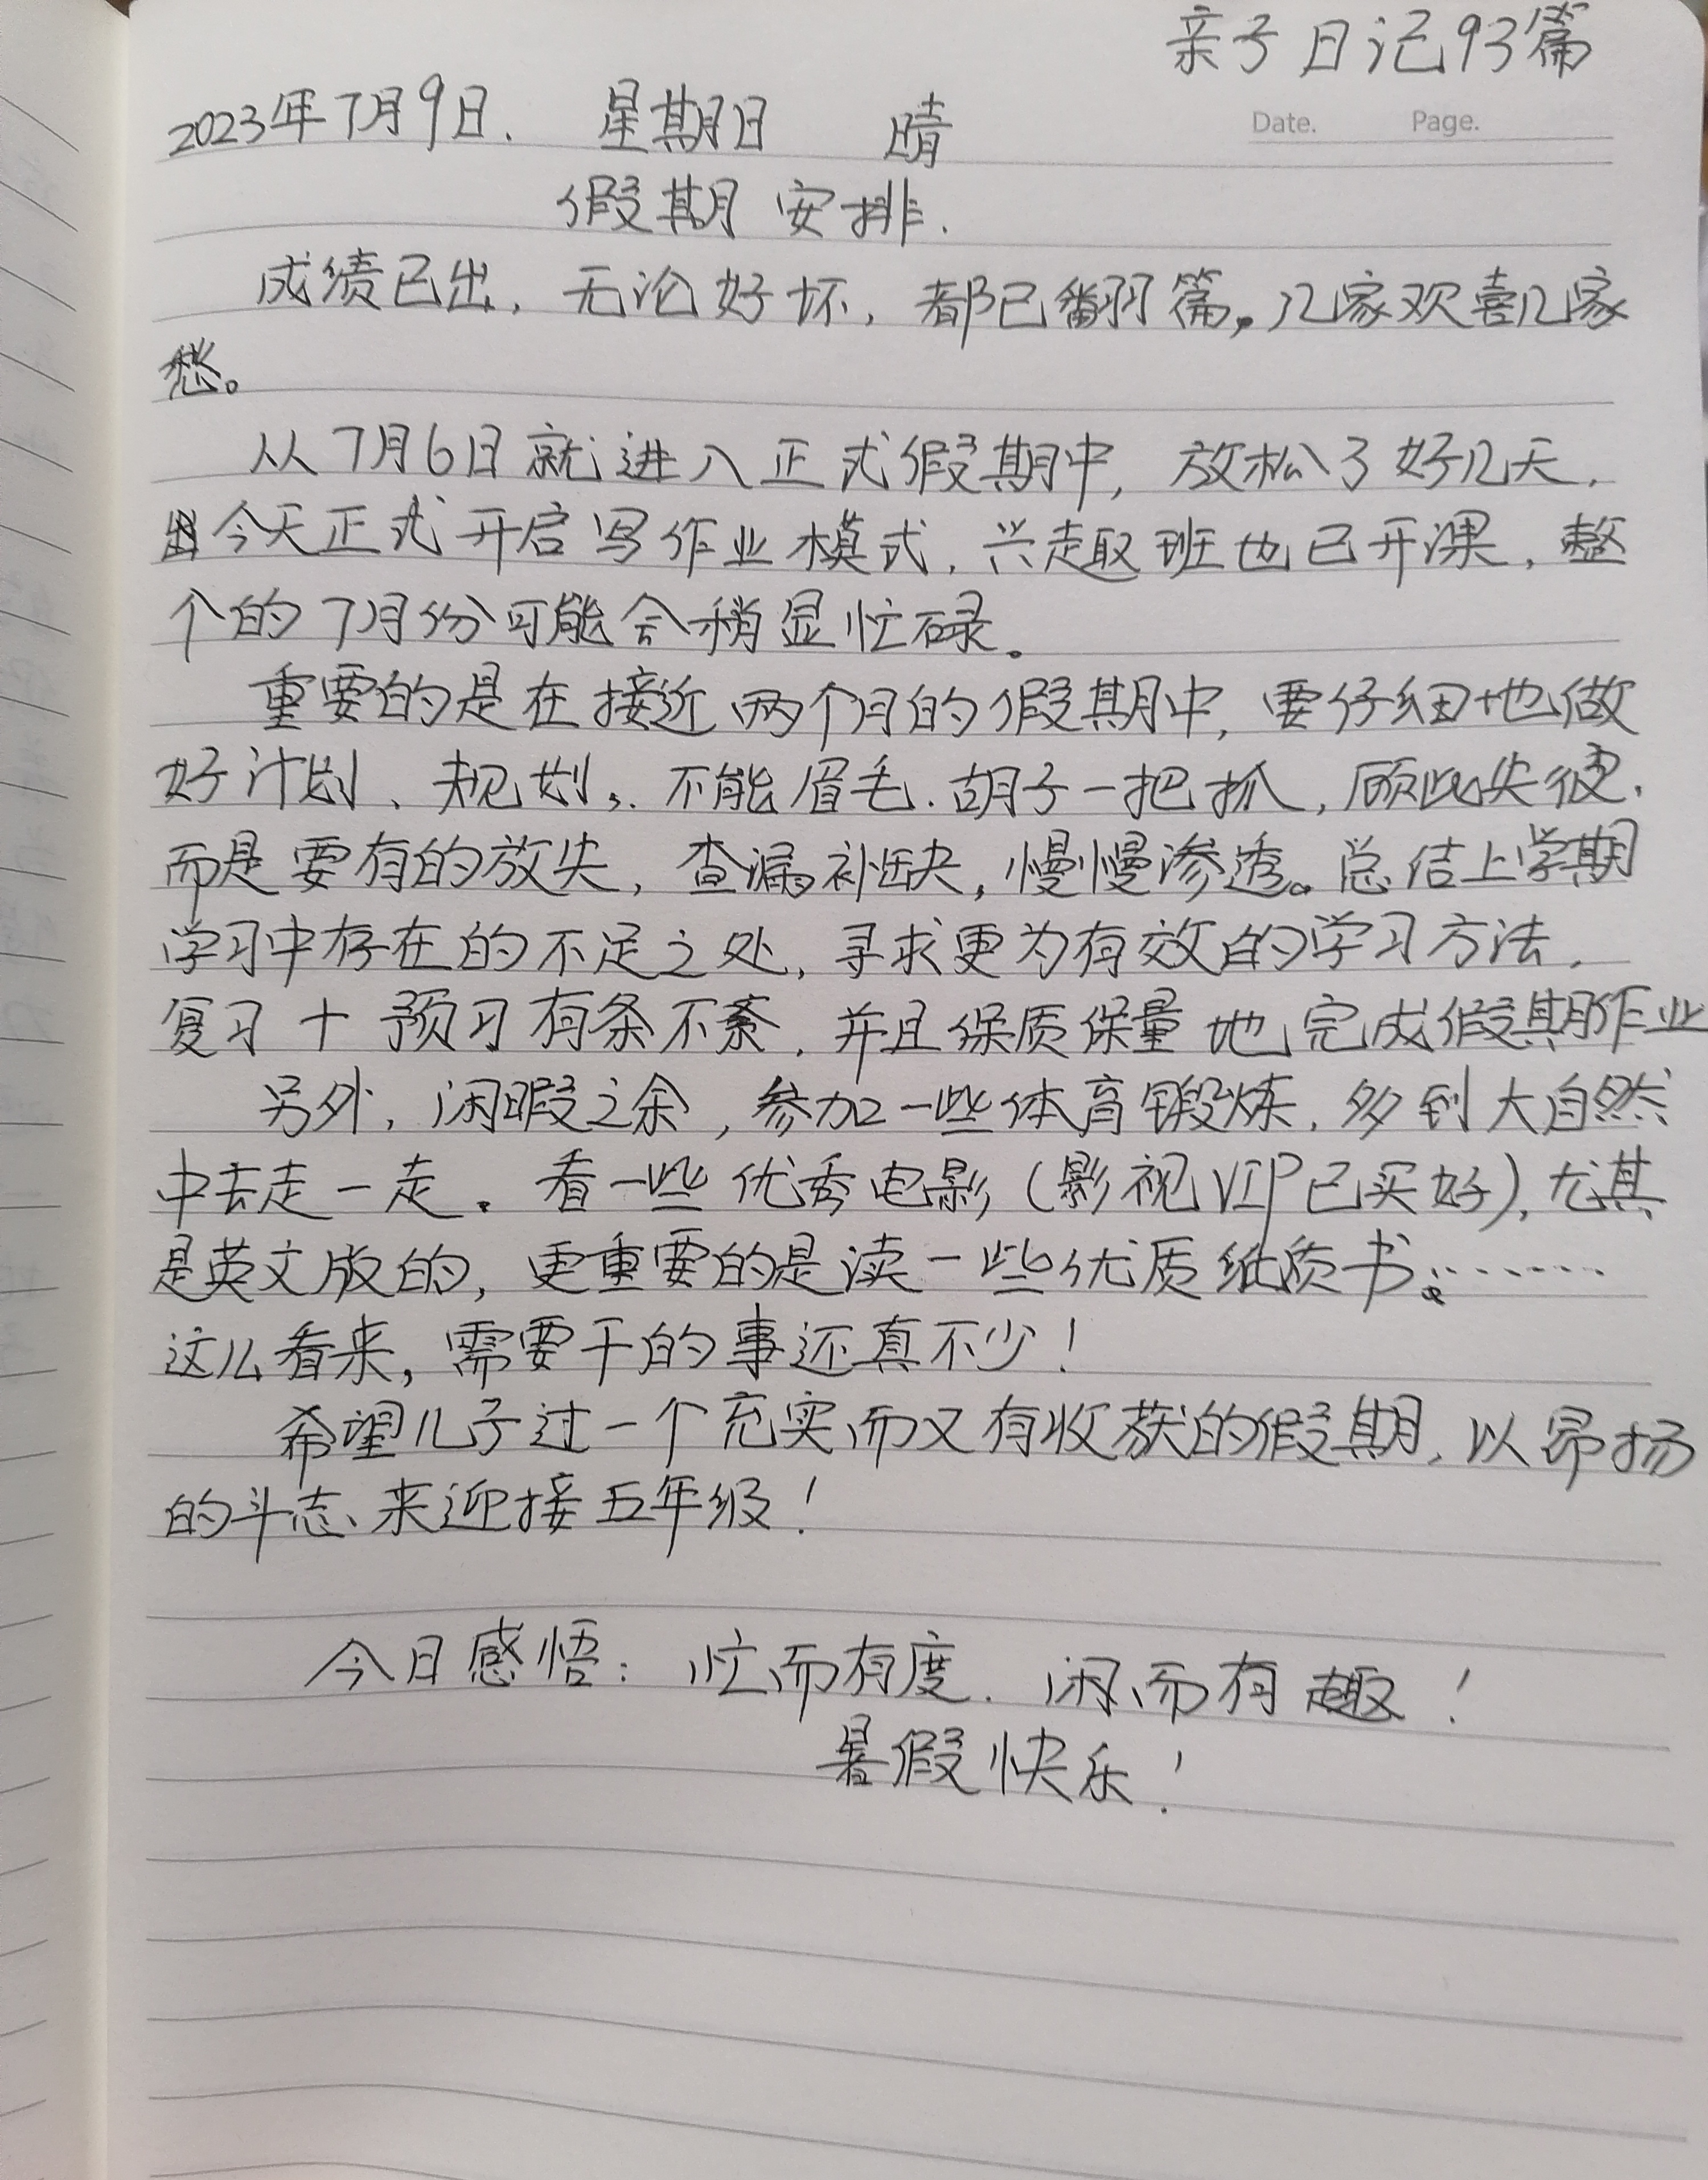 亲子日记93篇
Date. Page.
2023年7月9日. 星期日 晴
假期安排.
成绩已出，无论好坏，都已翻篇。几家欢喜几家
愁。
从7月6日就进入正式假期中，放松了好几天，
今天正式开启写作业模式，兴趣班也已开课，整
个的7月份可能会稍显忙碌。
重要的是在接近两个月的假期中，要仔细地做
好计划、规划，不能眉毛.胡子一把抓，顾此失彼，
而是要有的放失，查漏补缺，慢慢渗透。总结上学期
学习中存在的不足之处，寻求更为有效的学习方法，
复习+预习有条不紊，并且保质保量地完成假期作业
另外，闲暇之余，参加一些体育锻炼，多到大自然
中去走一走。看一些优秀电影（影视VIP已买好），尤其
是英文版的，更重要的是读一些优质纸质书。……
这么看来，需要干的事还真不少！
希望儿子过一个充实而又有收获的假期，以昂扬
的斗志、来迎接五年级！
今日感悟：忙而有度．闲而有趣！
暑假快乐！